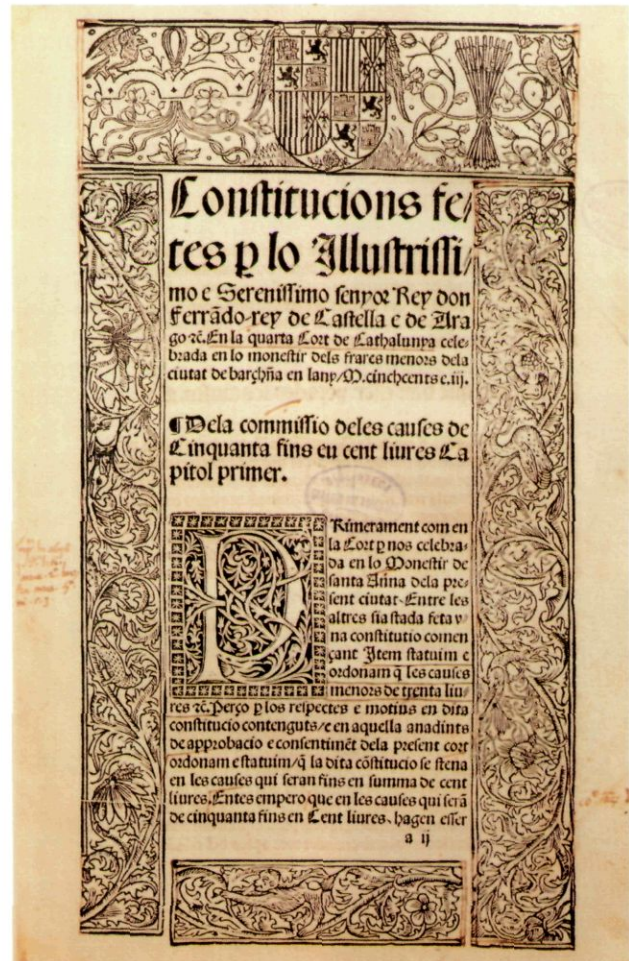 Constitucions fe/
tes ꝑ lo Illustrissi/
mo e Serenissimo senyor Rey don
Ferrãdo rey de Castella e de Ara
go ⁊c̃. En la quarta Cort de Cathalunya cele-
brada en lo monestir dels frares menors dela
ciutat de barçhña en lany/M. cinchcents e. iij.
¶Dela commissio deles causes de
Cinquanta fins eu cent liures Ca
pitol primer.
PRimerament com en
la Cort ꝑ nos celebra-
da en lo Monestir de
santa Anna dela pre-
sent ciutat. Entre les
altres sia stada feta v-
na constitutio comen
çant Item statuim e
ordonam q̃ les causes
menors de trenta liu-
res ⁊c̃. Perço ꝑ los respectes e motius en dita
constitucio contenguts/e en aquella anadints
de approbacio e consentimẽt dela present cort
ordonam e statuim/q̃ la dita cõstitucio se stena
en les causes qui seran fins en summa de cent
liures. Entes empero que en les causes qui serã
de cinquanta fins en Cent liures, hagen esser
a ij